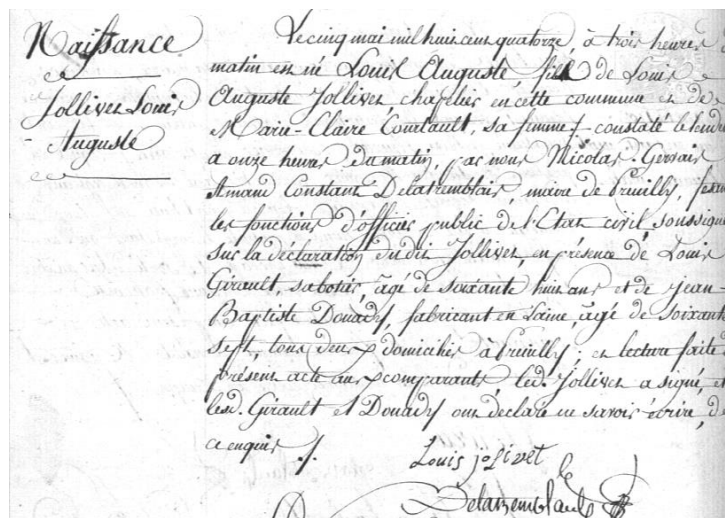 Naissance
Jollivet Louis
Auguste
Le cinq mai mil huit cent quatorze, à trois heures
matin est né Louis Auguste, fils de Louis
Auguste Jollivet, chapelier en cette commune et de
Marie-Claire Courtault, sa femme /. constaté le lendu
a onze heures du matin, par nous Nicolas-Gervais
Amand Constant Delatremblais, maire de Pruilly, fesan
les fonctions d'officier public de l'Etat civil soussigné
sur la déclaration dudit Jollivet, en présence de Louis
Girault, sabotier, âgé de soixante huit ans et de Jean-
Baptiste Douady, fabricant en laine, âgé de soixante
sept, tous deux domiciliés à Pruilly ; et lecture faite d
présent acte aux comparants led. Jollivet a signé, et
lesd. Girault et Douady ont déclaré ne savoir écrire, de
ce enquis /.
Louis jolivet
Delatremblais